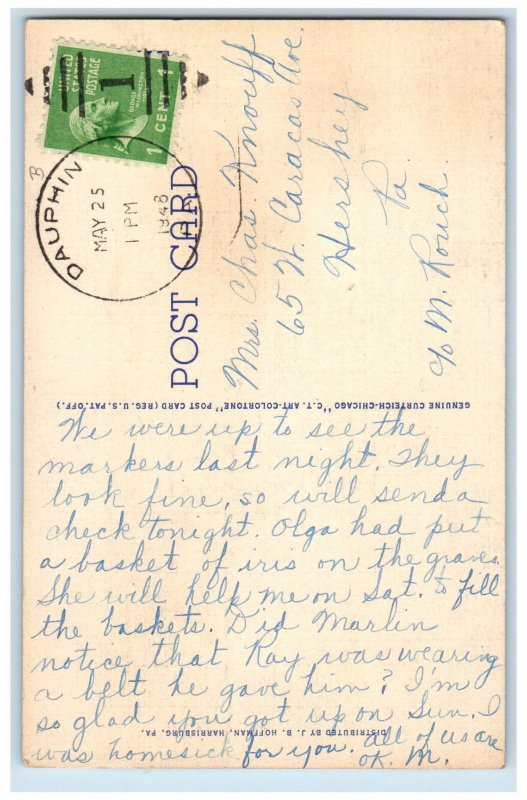 UNITED STATES POSTAGE
1
GEORGE WASHINGTON
1 CENT 1
DAUPHIN
MAY 25
1 PM
1948
PA.
POST CARD
Mrs. Chas. Knouff
65 W. Caracas Ave.
Hershey
Pa.
℅ M. Rouch.
GENUINE CURTEICH-CHICAGO "C.T. ART-COLORTONE" POST CARD (REG. U.S. PAT. OFF.)
We were up to see the
markers last night. They
look fine, so will send a
check tonight. Olga had put
a basket of iris on the graves.
She will help me on Sat. to fill
the baskets. Did Marlin
notice that Kay was wearing
a belt he gave him? I'm
so glad you got up on Sun. I
was homesick for you. All of us are
OK. M.
DISTRIBUTED BY J. B. HOFFMAN, HARRISBURG, PA.